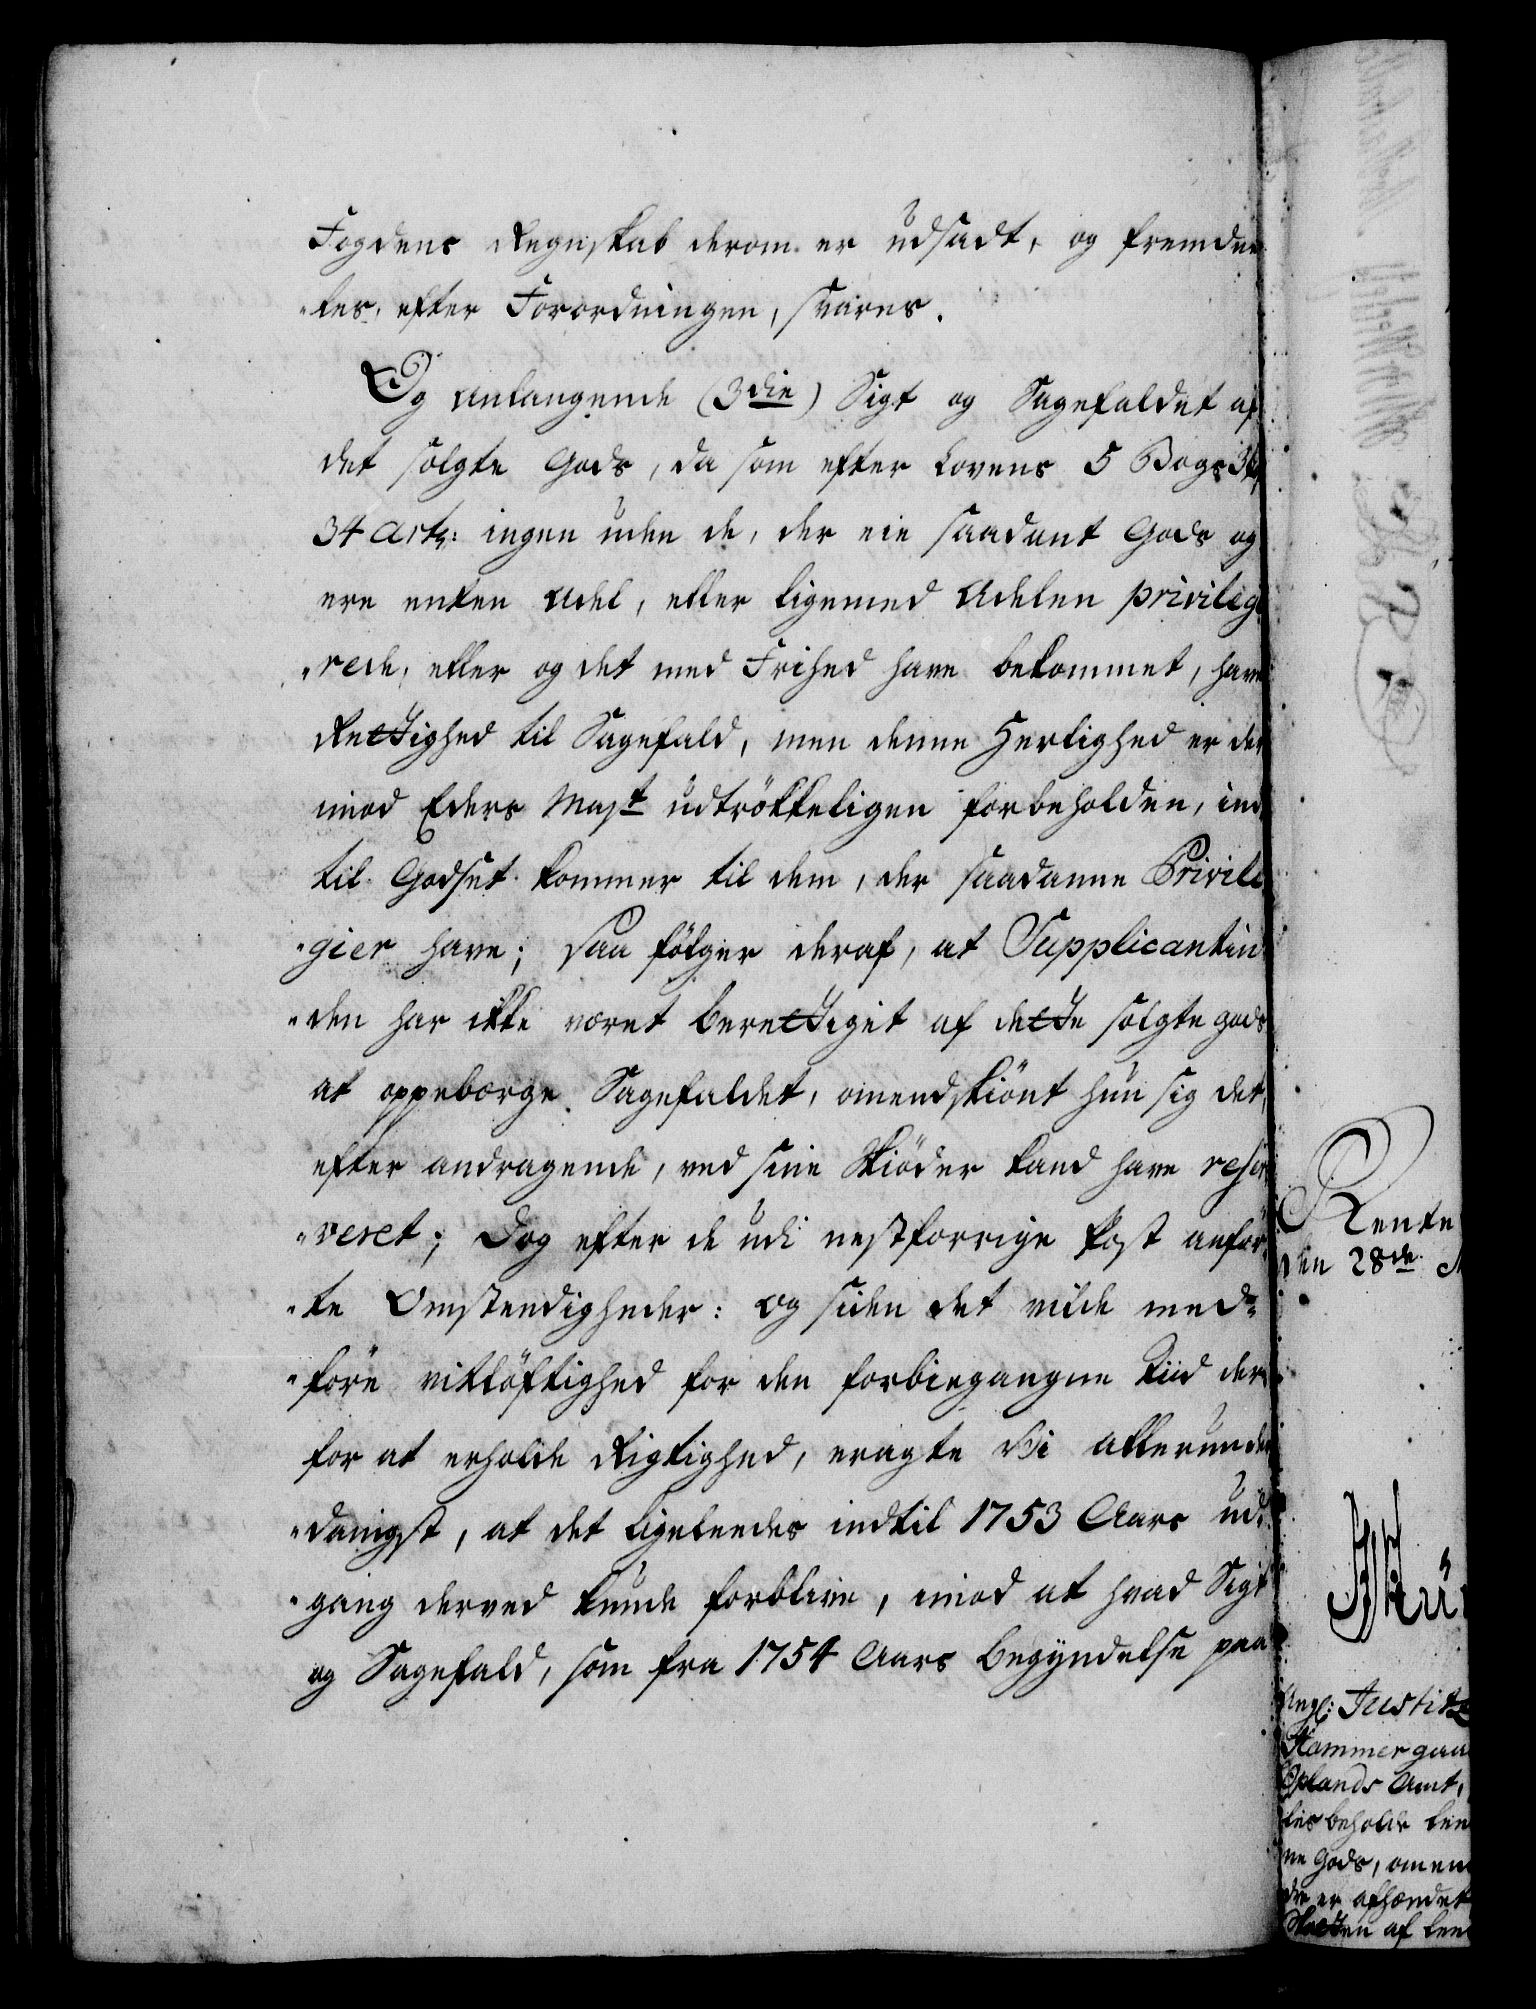 Fogdens Regnskab derom er udsadt, og fremdee
„les, efter Forordningen, svares.
Og anlangende (3die) Sigt og Sagefaldet af
det solgte Gods, da som efter Lovens 5 Bogs 3
34 Art: ingen uden de, der eie saadant Gods og
ere enten Adel, eller ligemed Adelen privilegi
„rede, eller og det med Frihed have bekommet, have
Rettighed til Sagefald, men denne Herlighed er der
imod Eders Mayt udtrökkeligen forbeholden, ind
til Godset kommer til dem, der saadanne Privile
„gier have; saa fölger deraf, at Supplicantin
„den har ikke været berettiget af dette solgte gods
at oppebærge Sagefaldet, omendskiönt hun sig det,
efter andragende, ved sine Skiöder kand have reser
„veret; Dog efter de udi nestforrige Post anför
„te Omstendigheder: og siden det vilde med„
„före vitlöftighed for den forbiegangne Tiid der
for at erholde Rigtighed, eragte Vi allerunder
„danigst, at det ligeledes indtil 1753 Aars ud„
„gang derved kunde forblive, imod at hvad Sigt
og Sagefald, som fra 1754 Aars Begyndelse paa
Rente
den 28de
Angl: Justitz
Kammergaa
Oplands Amt,
les beholde
ne Gods, omen
dre er afhændet
Skatten af